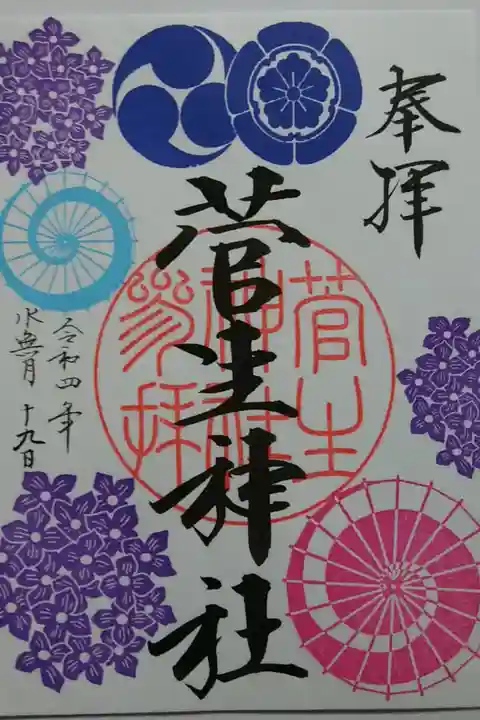 奉拝
菅生神社
菅生
神社
参拝
令和四年
水無月 十九日